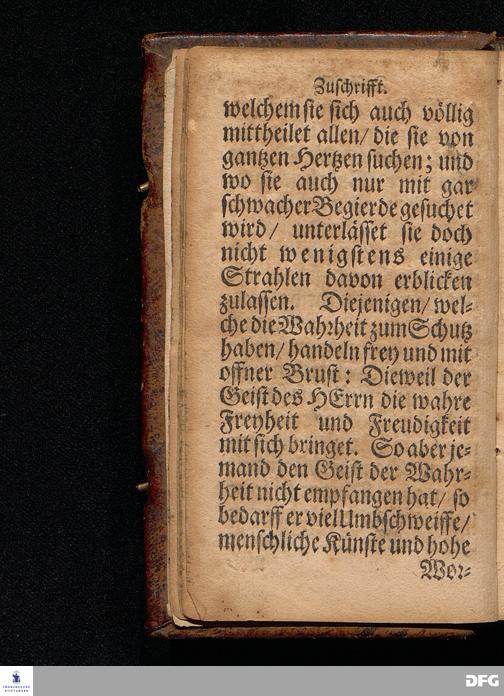 Zuschrifft.
welchem sie sich auch völlig
mittheilet allen/ die sie von
gantzen Hertzen suchen; und
wo sie auch nur mit gar
schwacher Begierde gesuchet
wird/ unterlässet sie doch
nicht wenigstens einige
Strahlen davon erblicken
zulassen. Diejenigen/ wel-
che die Wahrheit zum Schutz
haben/ handeln frey und mit
offner Brust: Dieweil der
Geist des HErrn die wahre
Freyheit und Freudigkeit
mit sich bringet. So aber je-
mand den Geist der Wahr-
heit nicht empfangen hat/ so
bedarff er viel Umbschweiffe/
menschliche Künste und hohe
Wor-
FRANCKESCHE
STIFTUNGEN
DFG